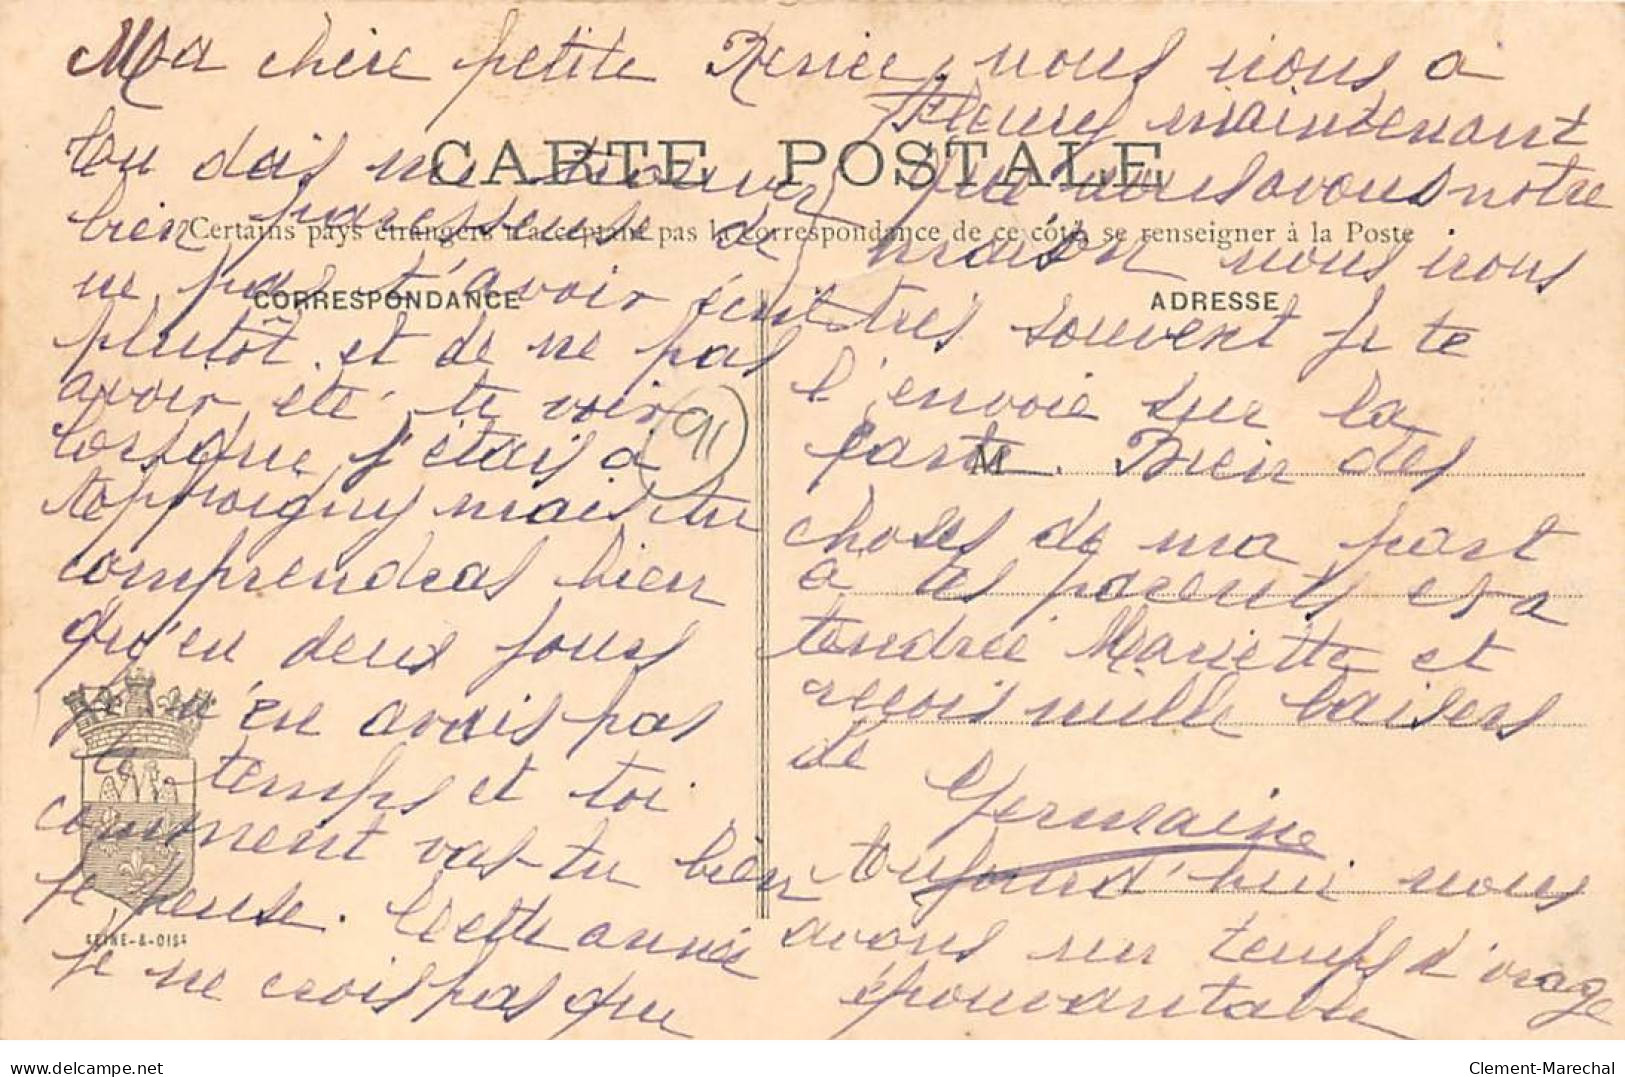 Ma chère petite Renée,
tu dois me trouver
bien paresseuse de
ne pas t'avoir écrit
plutôt et de ne pas
avoir été te voir
lorsque j'étais à
mais tu
comprendras bien
qu'en deux jours
je n'en avais pas
le temps et toi
comment vas-tu bien
je pense. Cette année
je ne crois pas que
nous irons à
Fleury maintenant
que nous avons notre
maison nous irons
très souvent je te
l'envoie sur la
carte. Bien des
choses de ma part
a tes parents et a
Mariette et
reçois mille baisers
de
Germaine
aujourd'hui nous
avons un temps d'orage
épouvantable
CARTE POSTALE
Certains pays étrangers n'acceptant pas la correspondance de ce côté, se renseigner à la Poste
CORRESPONDANCE
ADRESSE
M
91
SEINE-&-OISE
delcampe.net
Clement-Marechal